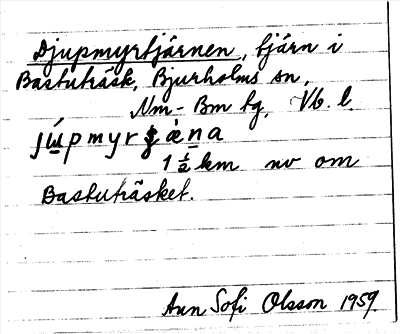 Djupmyrtjärnen, tjärn i
Bastuträsk, Bjurholms sn,
Nm - Bm tg, Vb. l.
1 ½ km nv om
Bastuträsket.
Ann Sofi Olsson 1959